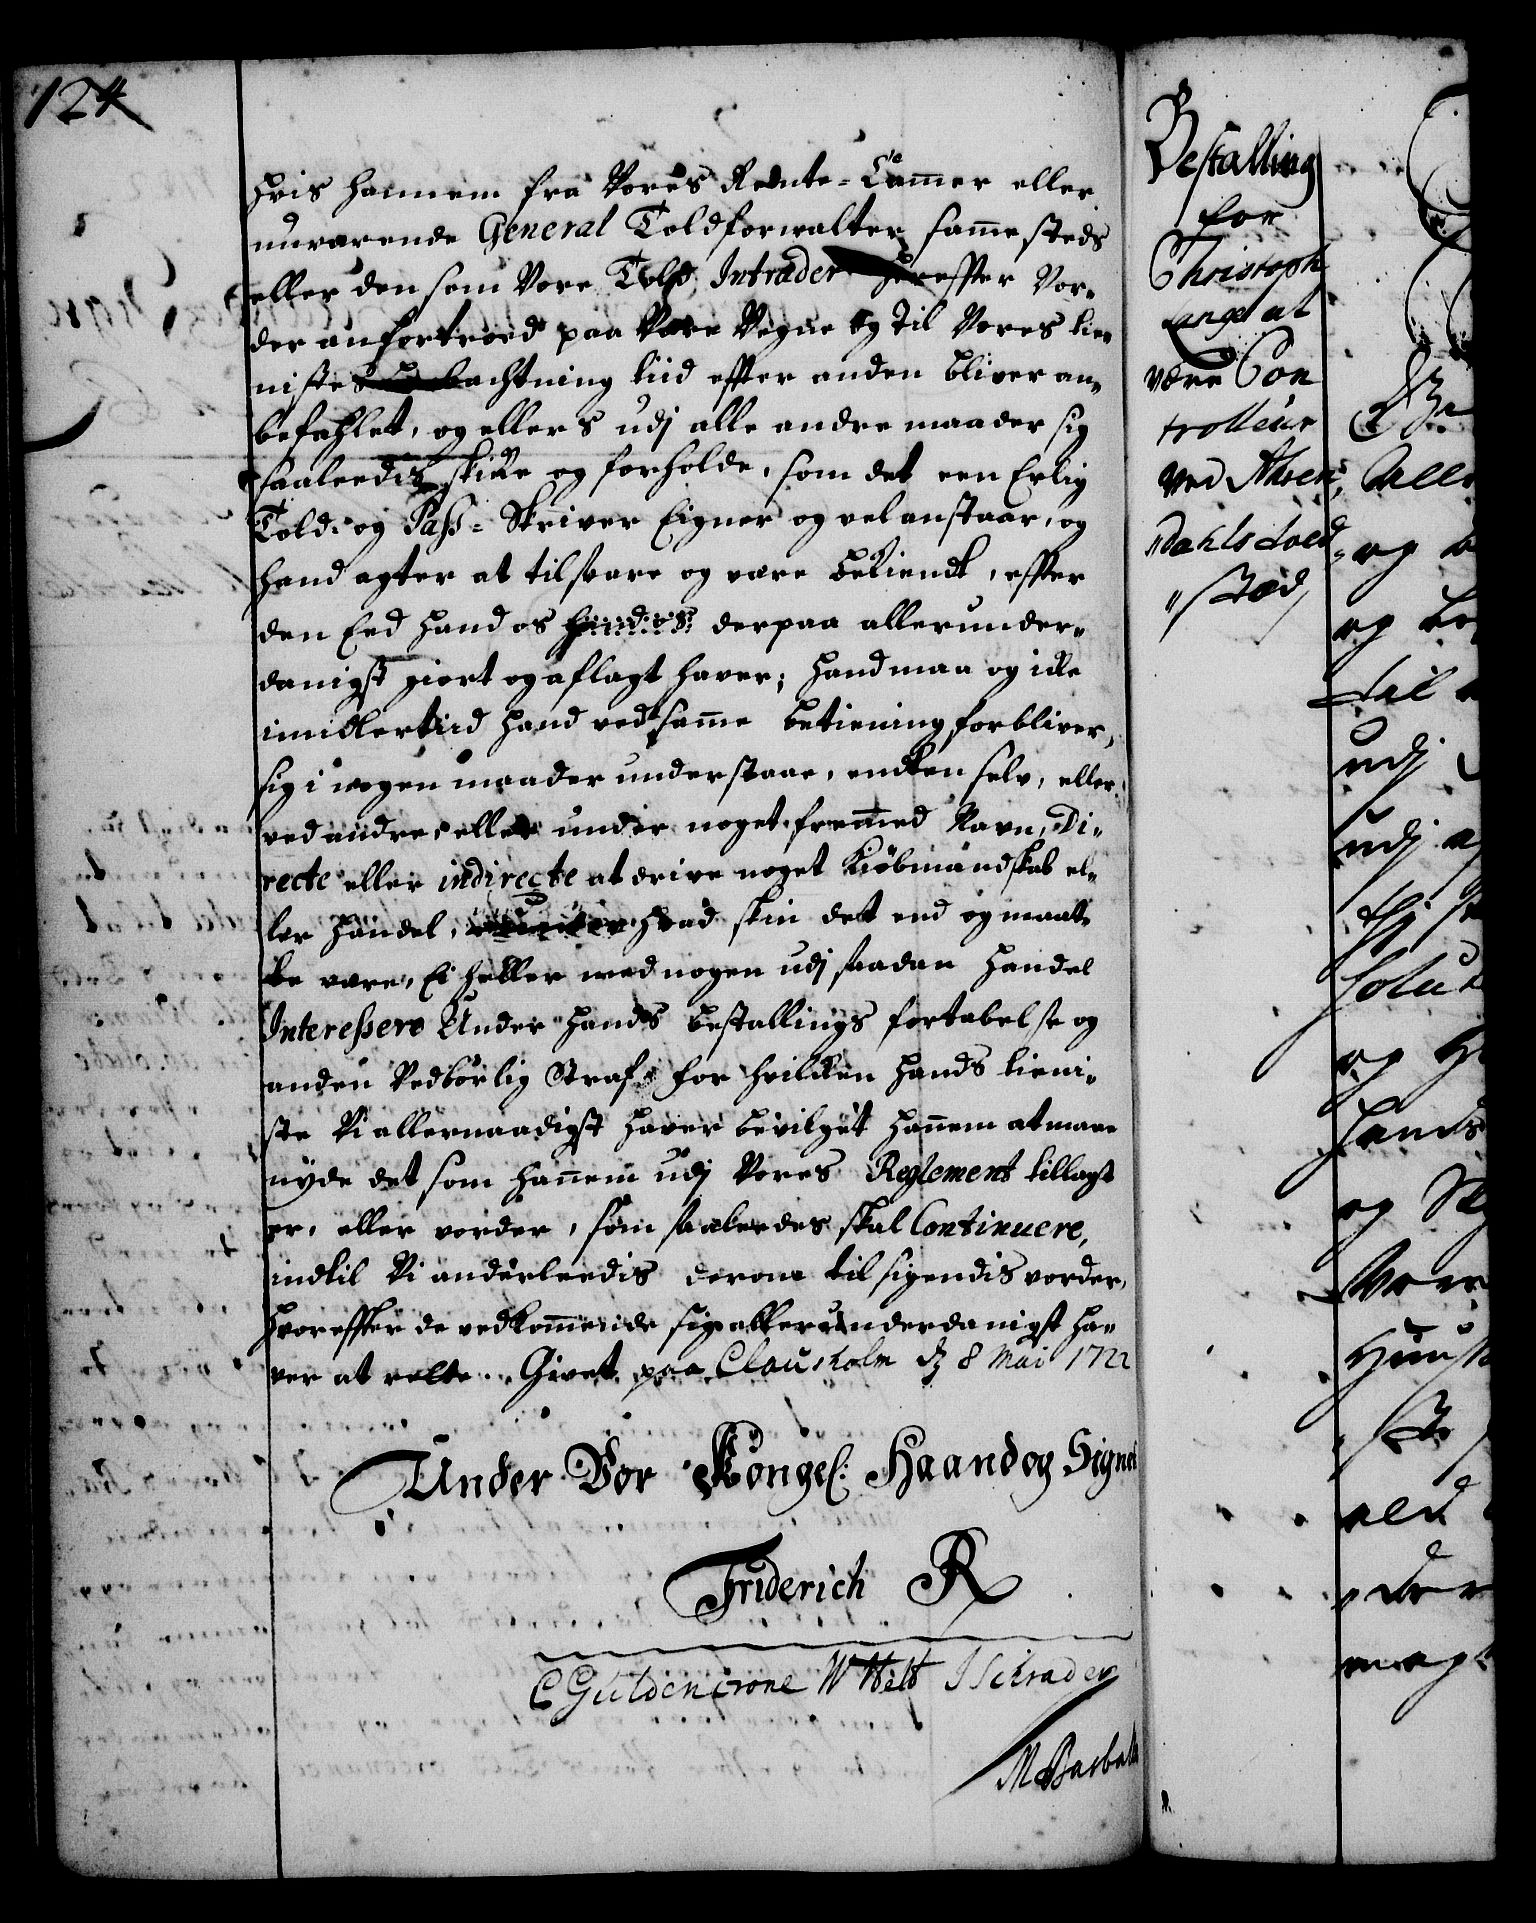 124
hvis hannem fra Vores Rente-Cammer eller
nuværende General Toldforvalter sammesteds
eller den som Vore Told Intrader herefter Vor-
der anfortroed paa Vore Vegne og Til Vores tie-
nistes bachtning tiid effter anden bliver an-
befahlet, og ellers udj alle andre maader sig
saaleedis skicke og forholde, som det een Erlig
Told- og Pass-Skriver Eigner og vel anstaar, og
hand agter at tilsvare og være bekiendt, effter
den Eed hand os derpaa allerunder-
danigst giort og aflagt haver; hand maa og icke
imidlertiid hand ved samme betiening forbliver,
sig i nogen maader understaae, endten selv, eller
ved andre, eller under noget fremmed Navn, Di-
recte eller indirecte at drive noget Kiöbmandskab el-
ler handel, hvad skin det end og maat-
te være, Ei heller med nogen udj saadan handel
Interessere Under hands bestallings fortabelse og
anden Vedbörlig Straf; for hvilcken hands tieni-
ste Vi allernaadigst haver bevilget hannem at maae
nyde det som hannem udj Vores Reglement tillagt
er, eller vorder, som saaledes skal Continuere,
indtil Vi anderleedis derom tilsigendis vorder,
hvoreffter de vedkommende sig allerunderdanigst ha-
ver at rette. Givet paa Clausholm dg 8 Mai 1722
Under Vor Kongel: Haand og Signet
Friderich R
C Güldencrone W Helt J Schrader
M Barbals
Bestalling
for
Christoph
Lange at
være Con
trolleur
ved
Dahls toed
stæd
alle
og
og
til
udj
udj
og
hands
og
Vor